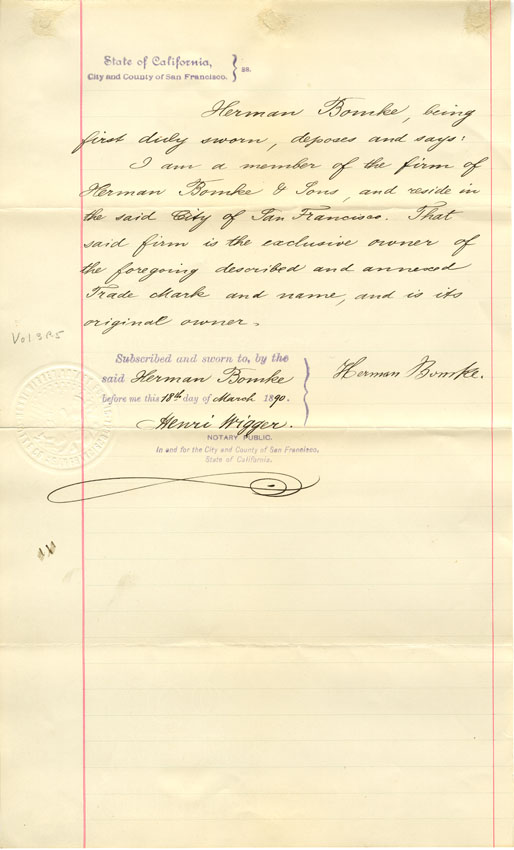 State of California,
City and County of San Francisco. } ss.
Herman Bomke, being
first duly sworn, deposes and says:
I am a member of the firm of
Herman Bomke & Sons, and reside in
the said City of San Francisco. That
said firm is the exclusive owner of
the foregoing described and annexed
Trade Mark and name, and is its
original owner.
Vol. 3 P. 5
Subscribed and sworn to, by the
said Herman Bomke
before me this 18th day of March 1890.
Herman Bomke.
Henri Wigger.
NOTARY PUBLIC.
In and for the City and County of San Francisco,
State of California.